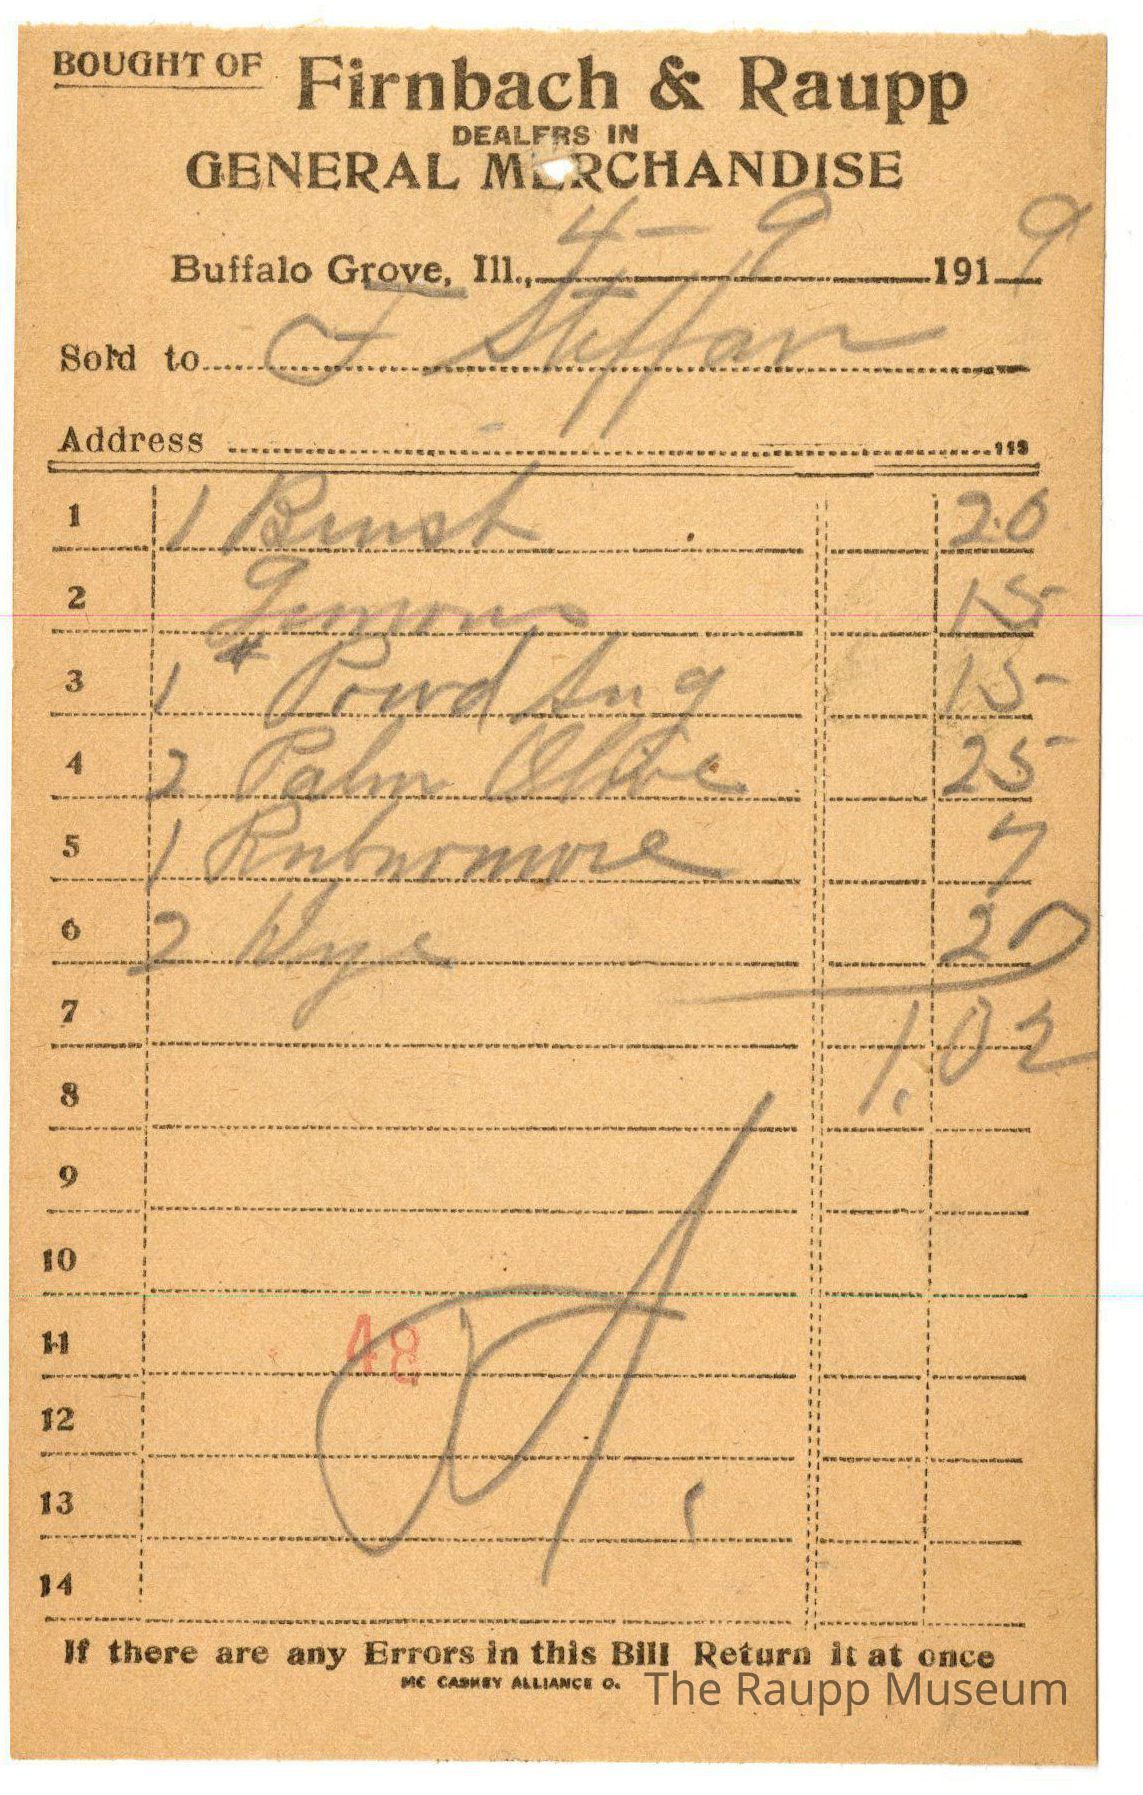 BOUGHT OF Firnbach & Raupp
DEALERS IN
GENERAL MERCHANDISE
Buffalo Grove, Ill., 4 - 9 1919
Sold to F Steffan
Address
1 1 Brush 20
2 Lemons 15
3 1 # Powd Sug 15
4 2 Palm Olive 25
5 1 7
6 2 20
7 1.02
8
9
10
11 48
12
13
14
If there are any Errors in this Bill Return it at once
MC CASKEY ALLIANCE O.
The Raupp Museum